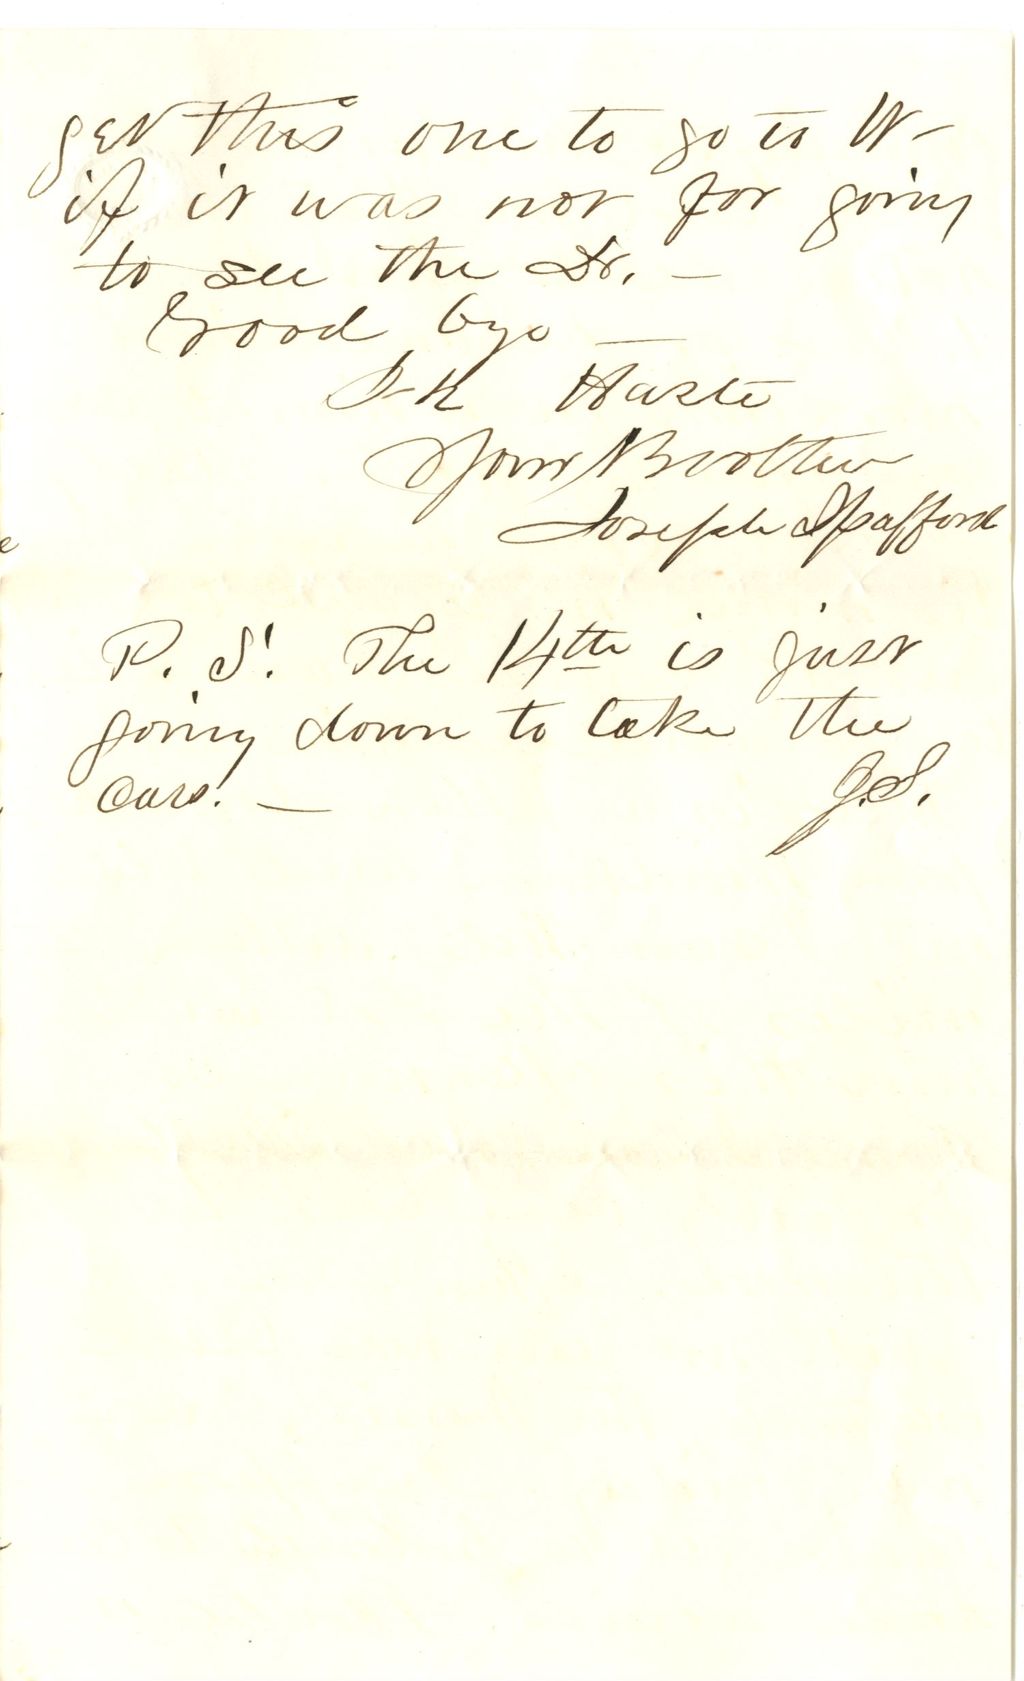 get this one to go to W-
if it was not for going
to see the Dr. —
Good bye —
In Haste
Your Brother
Joseph Spafford
P. S. The 14th is just
going down to take the
cars. — J.S.